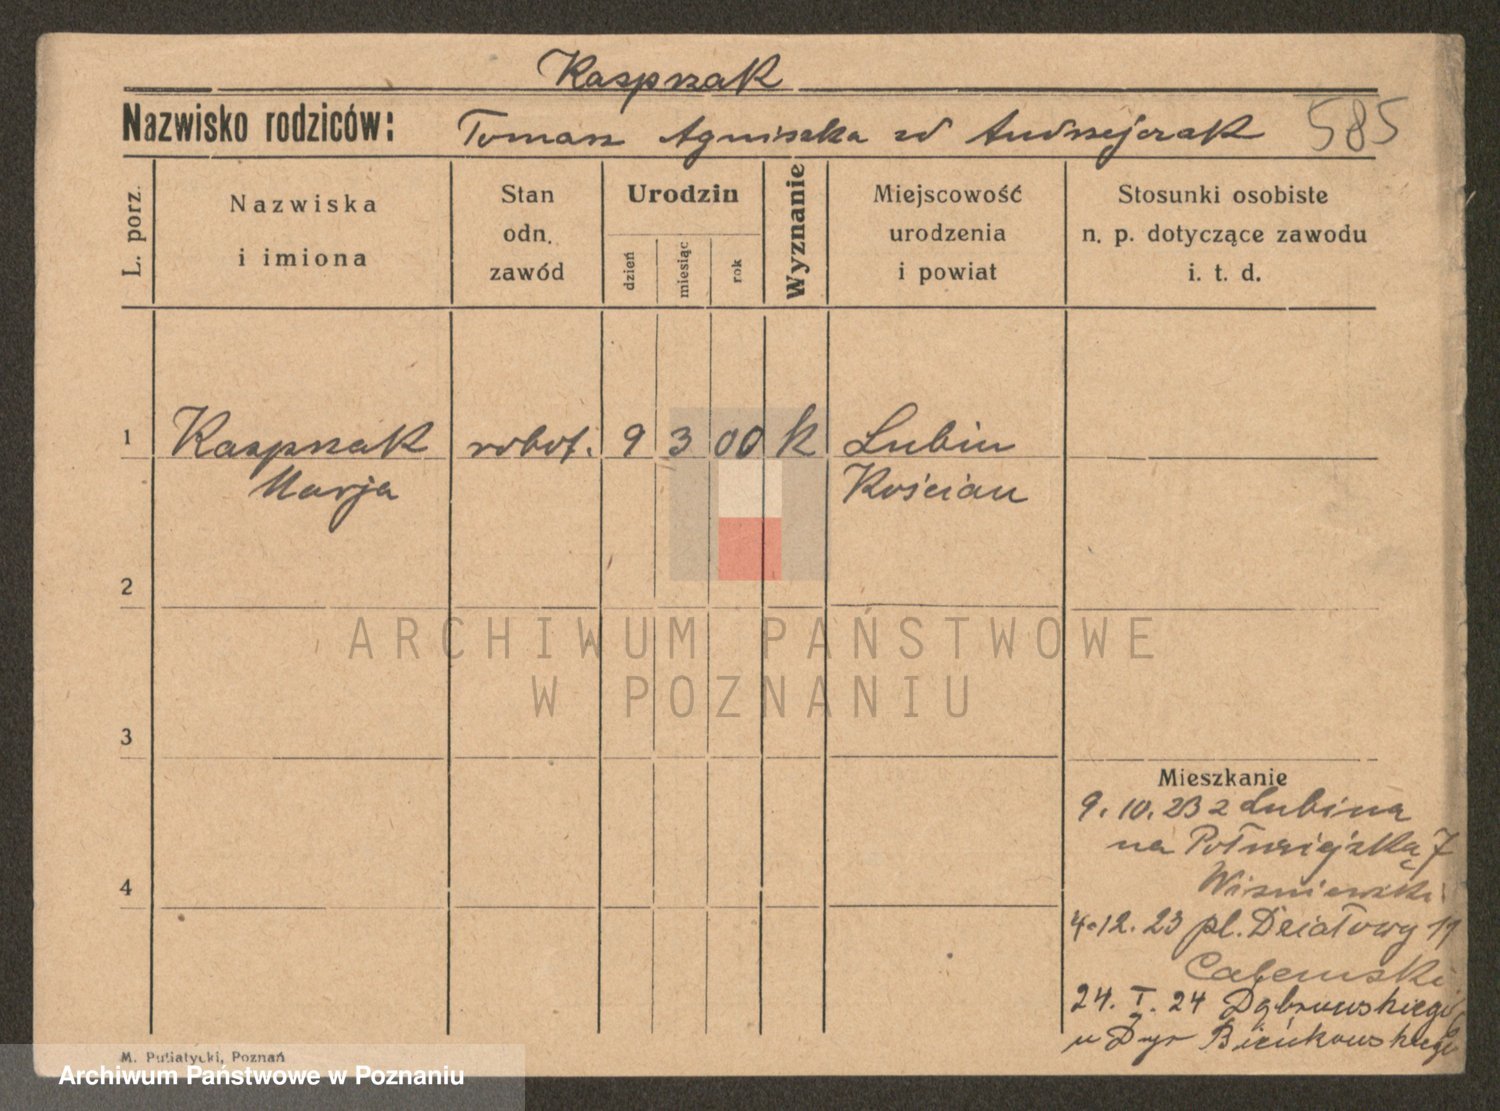 Kasprzak
Nazwisko rodziców: Tomasz Agniszka zd Andrzejczak 585
L. porz.
Nazwiska
i imiona
Stan
odn.
zawód
Urodzin
dzień
miesiąc
rok
Wyznanie
Miejscowość
urodzenia
i powiat
Stosunki osobiste
n. p. dotyczące zawodu
i. t. d.
1 Kasprzak robot. 9 3 00 k Lubin
Marja Kościan
2
ARCHIWUM PAŃSTWOWE
W POZNANIU
3
Mieszkanie
9. 10. 23 z Lubina
na Półwiejską 7
Wiśniewski
4
4.12.23 pl. Działowy 11
24. I. 24 Dąbrowskiego
u Bieńkowskiego
M. Putiatycki, Poznań
Archiwum Państwowe w Poznaniu